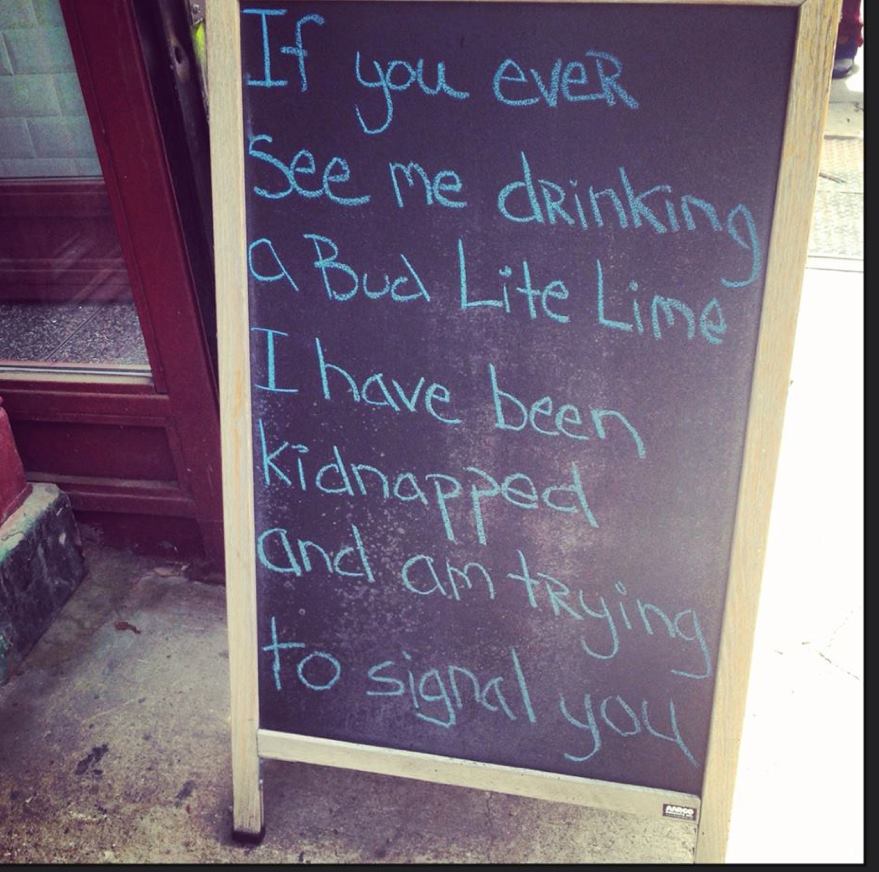 If you ever
See me drinking
a Bud Lite Lime
I have been
kidnapped
and am trying
to signal you
AARCO